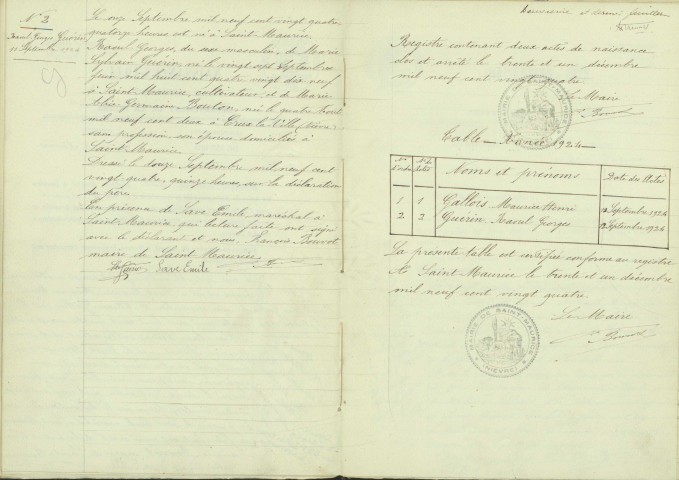 N° 2
Raoul Georges Guérin
11 Septembre 1924
Le onze Septembre mil neuf cent vingt quatre
quatorze heures est né à Saint Maurice
Raoul Georges, du sexe masculin, de Marie
Sylvain Guérin né le vingt sept Septembre
mil huit cent quatre vingt dix neuf
à Saint Maurice, cultivateur, et de Marie
Germain Bouton, née le quatre Août
mil neuf cent deux à Crux la Ville (Nièvre)
sans profession, son épouse domiciliés à
Saint Maurice.
Dressé le douze Septembre mil neuf cent
vingt quatre, quinze heures sur la déclaration
du père.
En présence de Save Emile, maréchal à
Saint Maurice, qui lecture faite ont signé
avec le déclarant et nous
maire de Saint Maurice.
Save Emile
Registre contenant deux actes de naissance
clos et arrêté le trente et un décembre
mil neuf cent vingt quatre
Le Maire
Table — Année 1924 —
Noms et prénoms Date des Actes
1 1 Gallois Maurice Henri Septembre 1924
2 2 Guérin Raoul Georges 12 Septembre 1924
La présente table est certifiée conforme au registre
A Saint Maurice le trente et un décembre
mil neuf cent vingt quatre.
Le Maire
MAIRIE DE SAINT-MAURICE
(NIEVRE)